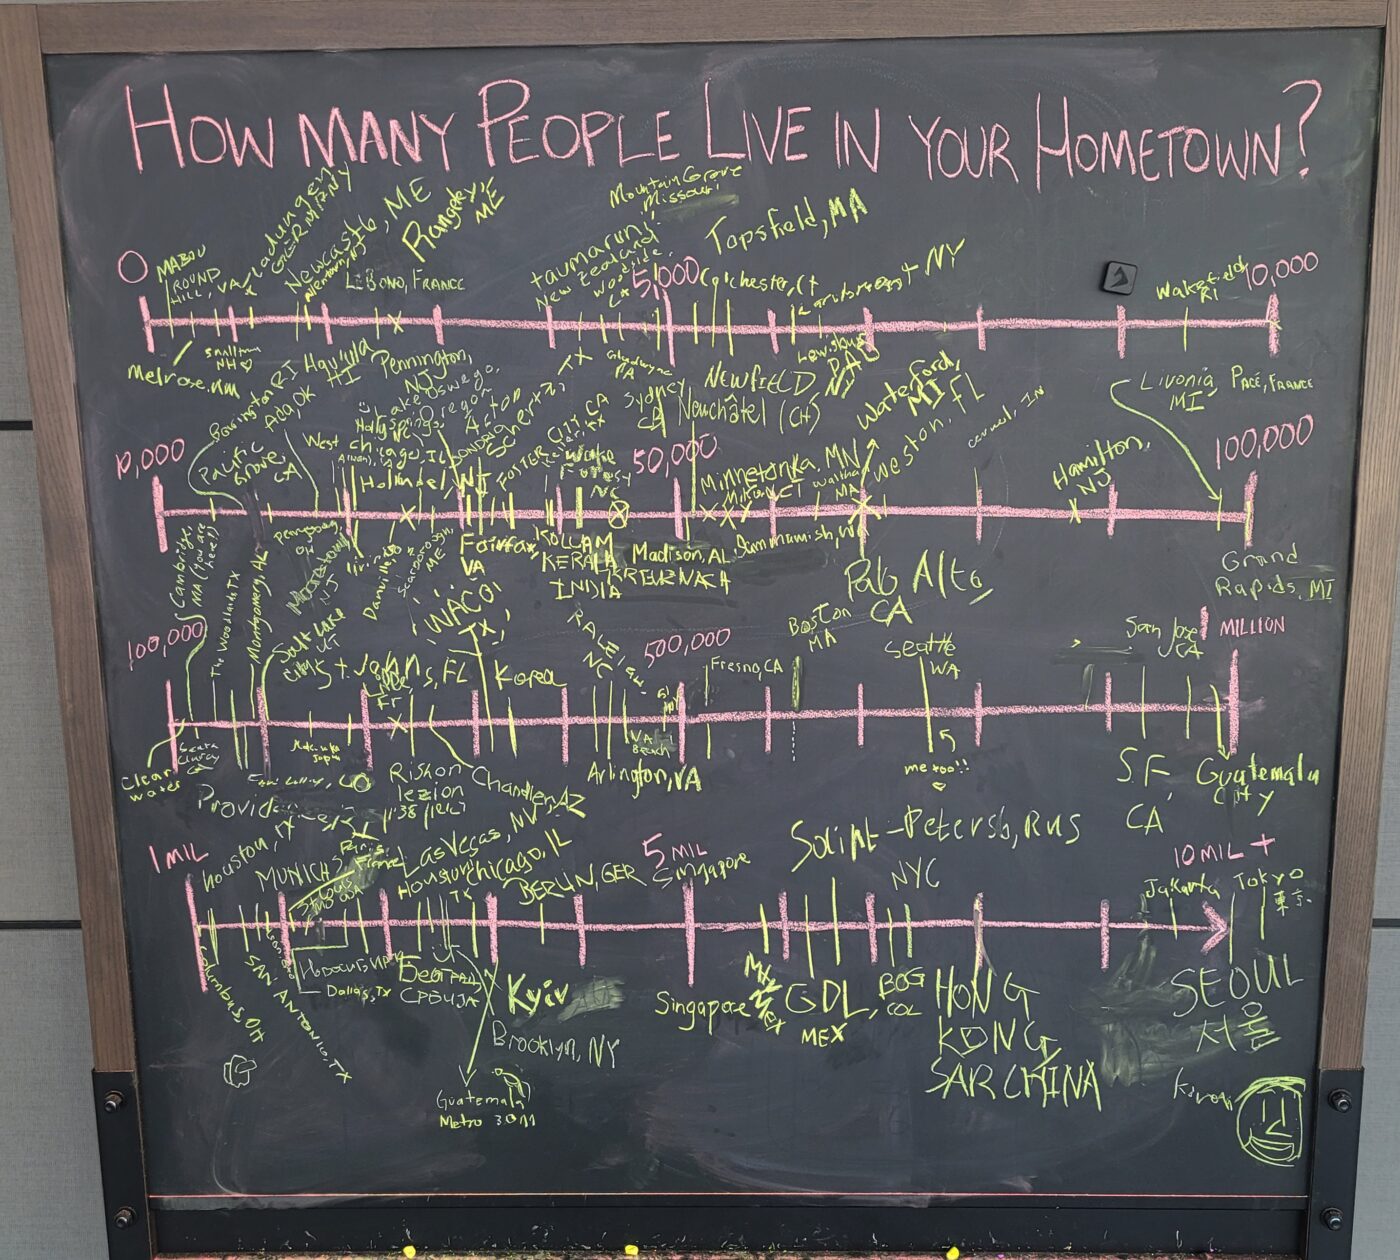 HOW MANY PEOPLE LIVE IN YOUR HOMETOWN?
0
MABOU
ROUND
HILL, VA
Ladungen
GERMANY
Newcastle, ME
Rangeley,
ME
LEBONO, FRANCE
taumarunui
New Zealand
Woodside,
CA
Mountain Grove
Missouri
5,000
Topsfield, MA
Colchester, Ct
NY
Wakefield
RI
10,000
Melrose, NM
Small town
NH
PA
Barrington RI
Ada, OK
Hau'ula
HI
Pennington,
NJ
Lake Oswego,
Oregon
Acton
Schertz, TX
Sydney
NEWFIELD
NY
Neuchâtel (CH)
Waterford,
MI
Weston, FL
Carmel, IN
Livonia
MI
PACÉ, FRANCE
10,000
Pacific
Grove,
CA
West Chicago, IL
Holly
Springs,
Holland, MI
FOSTER CITY, CA
Wake
Forest
NC
50,000
Minnetonka, MN
Waltham
MA
Hamilton,
NJ
100,000
Cambridge,
MA (you are
here!)
The Woodlands TX
Montgomery, AL
NJ
Danville
Scarborough
ME
Fairfax,
VA
KOLLAM
KERALA
INDIA
Madison, AL
KREUZNACH
Sammamish, WA
Palo Alto
CA
Grand
Rapids, MI
100,000
Salt Lake
City
UT
St. Johns, FL
WACO,
TX,
Korea
RALEIGH,
NC
500,000
Fresno, CA
Boston
MA
Seattle
WA
San Jose
CA
1 MILLION
Clear
water
Santa
Clarita
CA
Japan
Rishon
lezion
Chandler, AZ
VA
Beach
Arlington, VA
me too!!
SF,
CA
Guatemala
City
Providence
1 MIL
houston, TX
MUNICH
Paris,
France
Las Vegas, NV
Houston
TX
Chicago, IL
BERLIN, GER
5 MIL
Singapore
Saint-Petersb, RUS
NYC
10 MIL +
Jakarta
Tokyo
東京
Columbus OH
SAN ANTONIO, TX
Dallas, TX
Београд
СРБИЈА
Kyiv
Brooklyn, NY
Guatemala
Metro 3.0M
Singapore
MEX
GDL,
MEX
BOG
COL
HONG
KONG
SAR CHINA
SEOUL
서울
Korea